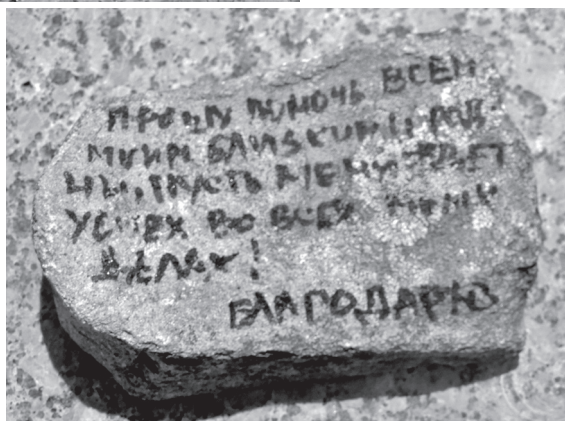 ПРОШУ ПОМОЧЬ ВСЕМ
МОИМ БЛИЗКИМ И РОД
НЫ, ПУСТЬ МЕНЯ ЖДЕТ
УСПЕХ ВО ВСЕХ МОИХ
ДЕЛАХ!
БЛАГОДАРЮ